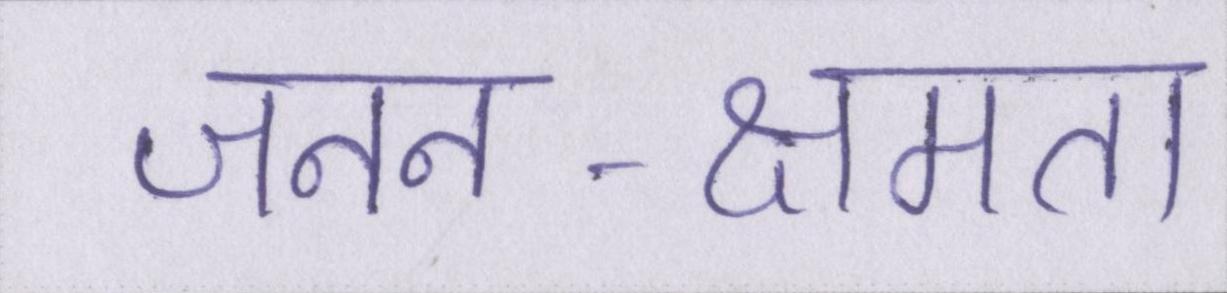 जनन - क्षमता